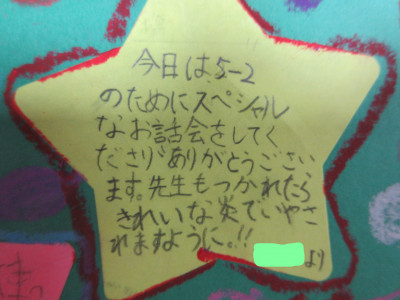 今日は5-2
のためにスペシャル
なお話会をしてく
ださりありがとうござい
ます。先生もつかれたら
きれいな炎でいやさ
れますように。!!
より